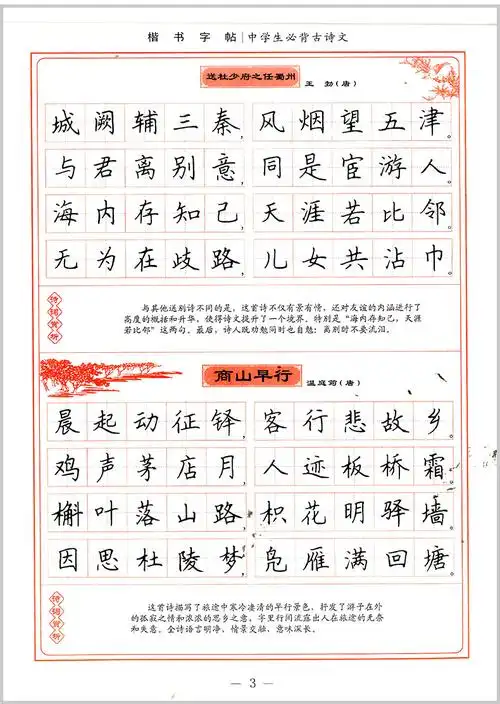 楷书字帖|中学生必背古诗文
送杜少府之任蜀州
王勃(唐)
城阙辅三秦,风烟望五津。
与君离别意,同是宦游人。
海内存知己,天涯若比邻。
无为在歧路,儿女共沾巾。
诗词赏析
与其他送别诗不同的是,这首诗不仅有景有情,还对友谊的内涵进行了
高度的概括和升华,使得诗文提升了一个境界。特别是“海内存知己,天涯
若比邻”这两句。最后,诗人既劝勉同时也自勉:离别时不要流泪。
商山早行
温庭筠(唐)
晨起动征铎,客行悲故乡。
鸡声茅店月,人迹板桥霜。
槲叶落山路,枳花明驿墙。
因思杜陵梦,凫雁满回塘。
诗词赏析
这首诗描写了旅途中寒冷凄清的早行景色,抒发了游子在外
的孤寂之情和浓浓的思乡之意,字里行间流露出人在旅途的无奈
和失意。全诗语言明净,情景交融、意味深长。
— 3 —